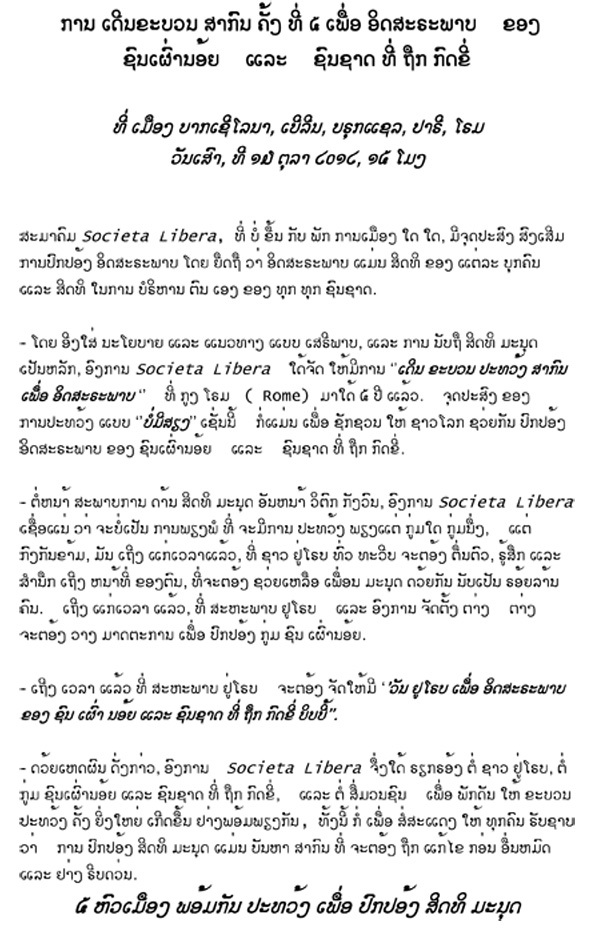 ການ ເດີນຂະບວນ ສາກົນ ຄັ້ງ ທີ່ ໔ ເພື່ອ ອິດສະຣະພາບ ຂອງ
ຊົນເຜົ່ານອ້ຍ ແລະ ຊົນຊາດ ທີ່ ຖືກ ກົດຂີ່
ທີ່ ເມືອງ ບາກເຊິໂລນາ, ເບີລິນ, ບຣຸກແຊລ, ປາຣີ, ໂຣມ
ວັນເສົາ, ທີ ໑໘ ຕຸລາ ໒໐໑໒, ໑໕ ໂມງ
ສະມາຄົມ Societa Libera, ທີ່ ບໍ່ ຂຶ້ນ ກັບ ພັກ ການເມືອງ ໃດ ໃດ, ມີຈຸດປະສົງ ສົງເສີມ
ການປົກປອ້ງ ອິດສະຣະພາບ ໂດຍ ຍຶດຖື ວ່າ ອິດສະຣະພາບ ແມ່ນ ສິດທິ ຂອງ ແຕ່ລະ ບຸກຄົນ
ແລະ ສິດທິ ໃນການ ບໍຣິຫານ ຕົນ ເອງ ຂອງ ທຸກ ທຸກ ຊົນຊາດ.
- ໂດຍ ອີງໃສ່ ນະໂຍບາຍ ແລະ ແນວທາງ ແບບ ເສຣີພາບ, ແລະ ການ ນັບຖື ສິດທິ ມະນຸດ
ເປັນຫລັກ, ອົງການ Societa Libera ໃດ້ຈັດ ໃຫ້ມີການ "ເດີນ ຂະບວນ ປະທວ້ງ ສາກົນ
ເພື່ອ ອິດສະຣະພາບ" ທີ່ ກູງ ໂຣມ ( Rome) ມາໃດ້ ໔ ປີ ແລ້ວ. ຈຸດປະສົງ ຂອງ
ການປະທວ້ງ ແບບ "ບໍ່ມີສຽງ" ເຊັ່ນນີ້ ກໍ່ແມ່ນ ເພື່ອ ຊັກຊວນ ໃຫ້ ຊາວໂລກ ຊ່ວຍກັນ ປົກປອ້ງ
ອິດສະຣະພາບ ຂອງ ຊົນເຜົ່ານອ້ຍ ແລະ ຊົນຊາດ ທີ່ ຖືກ ກົດຂີ່.
- ຕໍ່ຫນາ້ ສະພາບການ ດາ້ນ ສິດທິ ມະນຸດ ອັນຫນາ້ ວິຕົກ ກັງວົນ, ອົງການ Societa Libera
ເຊື່ອແນ່ ວ່າ ຈະບໍ່ເປັນ ການພຽງພໍ ທີ່ ຈະມີການ ປະທວ້ງ ພຽງແຕ່ ກຸ່ມໃດ ກຸ່ມນຶ່ງ, ແຕ່
ກົງກັນຂາ້ມ, ມັນ ເຖີງ ແກ່ເວລາແລ້ວ, ທີ່ ຊາວ ຢູໂຣບ ທົ່ວ ທະວີບ ຈະຕອ້ງ ຕື່ນຕົວ, ຮູ້ສຶກ ແລະ
ສຳນຶກ ເຖີງ ຫນາ້ທີ່ ຂອງຕົນ, ທີ່ຈະຕອ້ງ ຊ່ວຍເຫລືອ ເພື່ອນ ມະນຸດ ດວ້ຍກັນ ນັບເປັນ ຮອ້ຍລາ້ນ
ຄົນ. ເຖີງ ແກ່ເວລາ ແລ້ວ, ທີ່ ສະຫະພາບ ຢູໂຣບ ແລະ ອົງການ ຈັດຕັ້ງ ຕ່າງ ຕ່າງ
ຈະຕອ້ງ ວາງ ມາດຕະການ ເພື່ອ ປົກປອ້ງ ກຸ່ມ ຊົນ ເຜົ່ານອ້ຍ.
- ເຖີງ ເວລາ ແລ້ວ ທີ່ ສະຫະພາບ ຢູໂຣບ ຈະຕອ້ງ ຈັດໃຫ້ມີ "ວັນ ຢູໂຣບ ເພື່ອ ອິດສະຣະພາບ
ຂອງ ຊົນ ເຜົ່າ ນອ້ຍ ແລະ ຊົນຊາດ ທີ່ ຖືກ ກົດຂີ່ ບີບບັ້".
- ດວ້ຍເຫດຜົນ ດັ່ງກ່າວ, ອົງການ Societa Libera ຈຶ່ງໃດ້ ຮຽກຮອ້ງ ຕໍ່ ຊາວ ຢູໂຣບ, ຕໍ່
ກຸ່ມ ຊົນເຜົ່ານອ້ຍ ແລະ ຊົນຊາດ ທີ່ ຖືກ ກົດຂີ່, ແລະ ຕໍ່ ສື່ມວນຊົນ ເພື່ອ ພັກດັນ ໃຫ້ ຂະບວນ
ປະທວ້ງ ຄັ້ງ ຍິ່ງໃຫຍ່ ເກີດຂຶ້ນ ຢ່າງພ້ອມພຽງກັນ, ທັ້ງນີ້ ກໍ່ ເພື່ອ ສໍ່ສະແດງ ໃຫ້ ທຸກຄົນ ຮັບຊາບ
ວ່າ ການ ປົກປອ້ງ ສິດທິ ມະນຸດ ແມ່ນ ບັນຫາ ສາກົນ ທີ່ ຈະຕອ້ງ ຖືກ ແກ້ໄຂ ກ່ອນ ອື່ນຫມົດ
ແລະ ຢ່າງ ຣີບດ່ວນ.
໕ ຫົວເມືອງ ພອ້ມກັນ ປະທວ້ງ ເພື່ອ ປົກປອ້ງ ສິດທິ ມະນຸດ